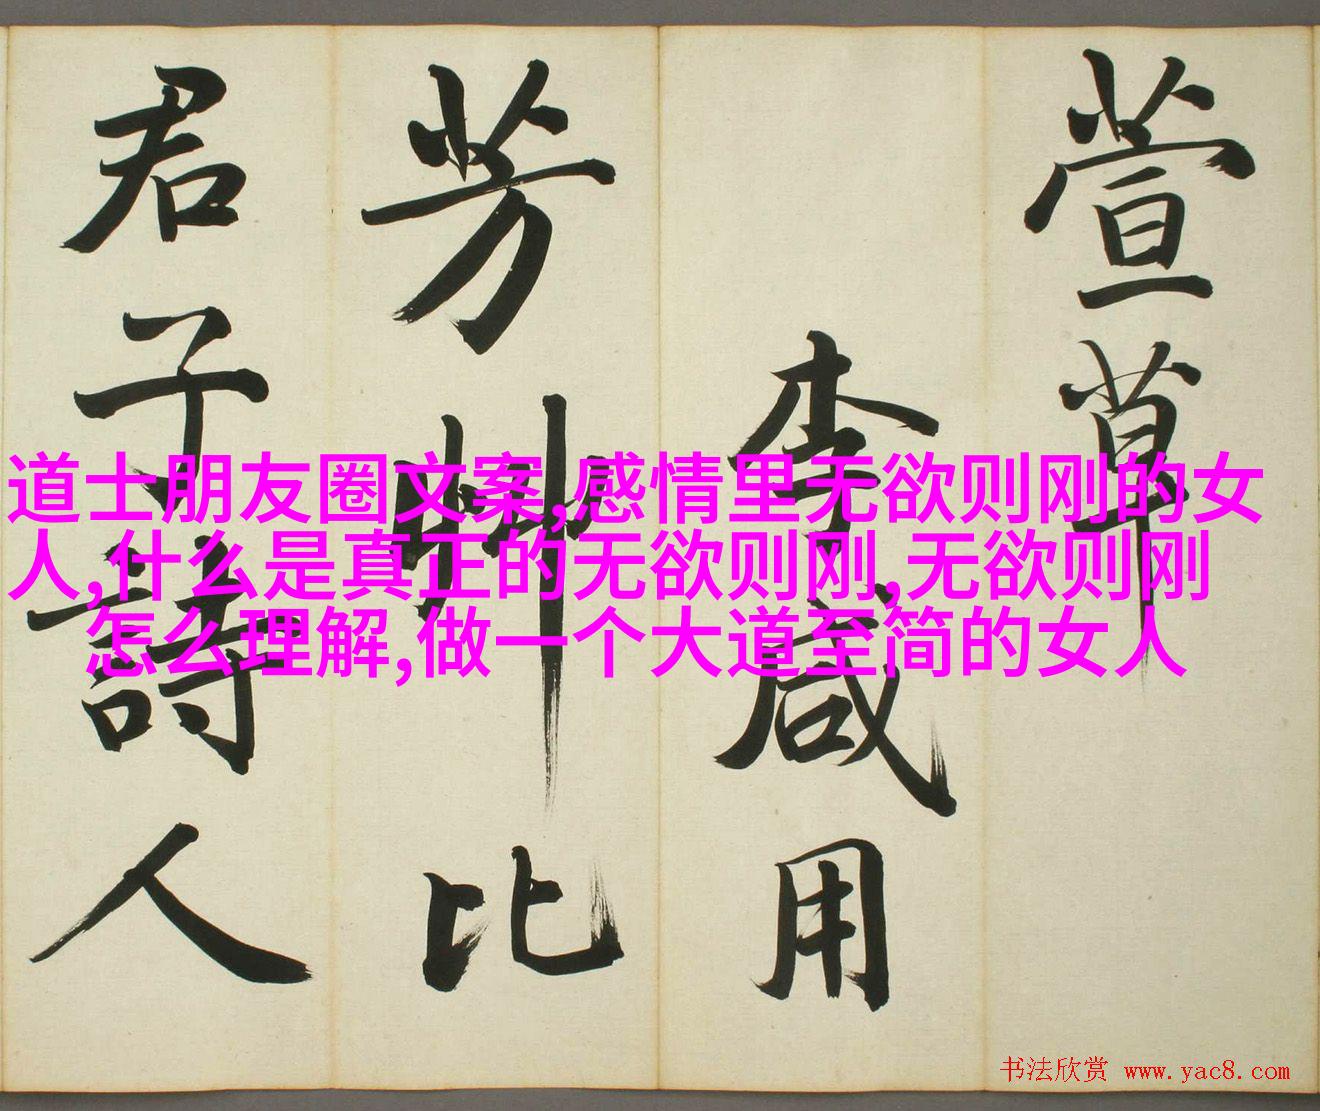 萱草
李咸用
芳艸比
君子詩人
道士朋友圈文案,感情里无欲则刚的女
人,什么是真正的无欲则刚,无欲则刚
怎么理解,做一个大道至简的女人
书法欣赏 www.yac8.com